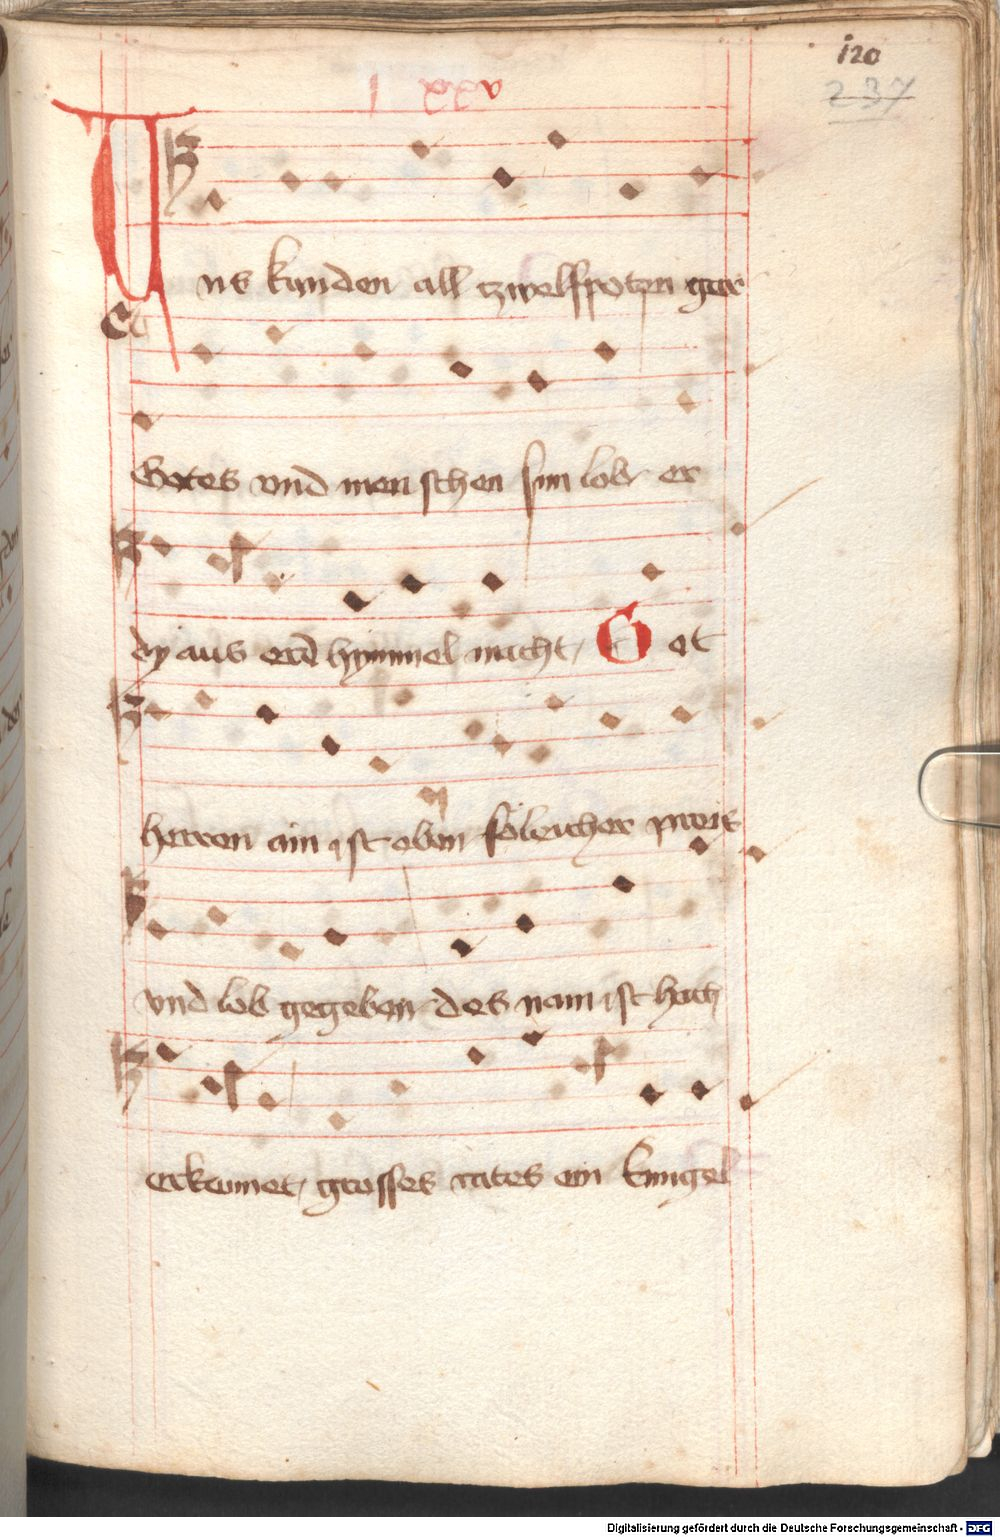 120
237
lxxv
Uns kunden all tzwelfpotzn gar
Gotes vnd menschen sun lobr er
dy aus erd hymmel macht / Got
herren ain ist eben söleicher preis
vnd lob gegeben des nam ist hach
erkennet / grosses rates ein kungel
Digitalisierung gefördert durch die Deutsche Forschungsgemeinschaft - DFG